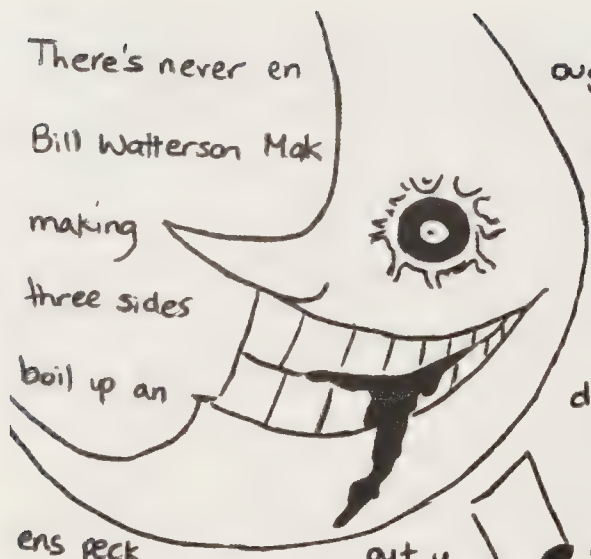 There's never en oug
Bill Watterson Mak
making
three sides
boil up an d
ens peck out u